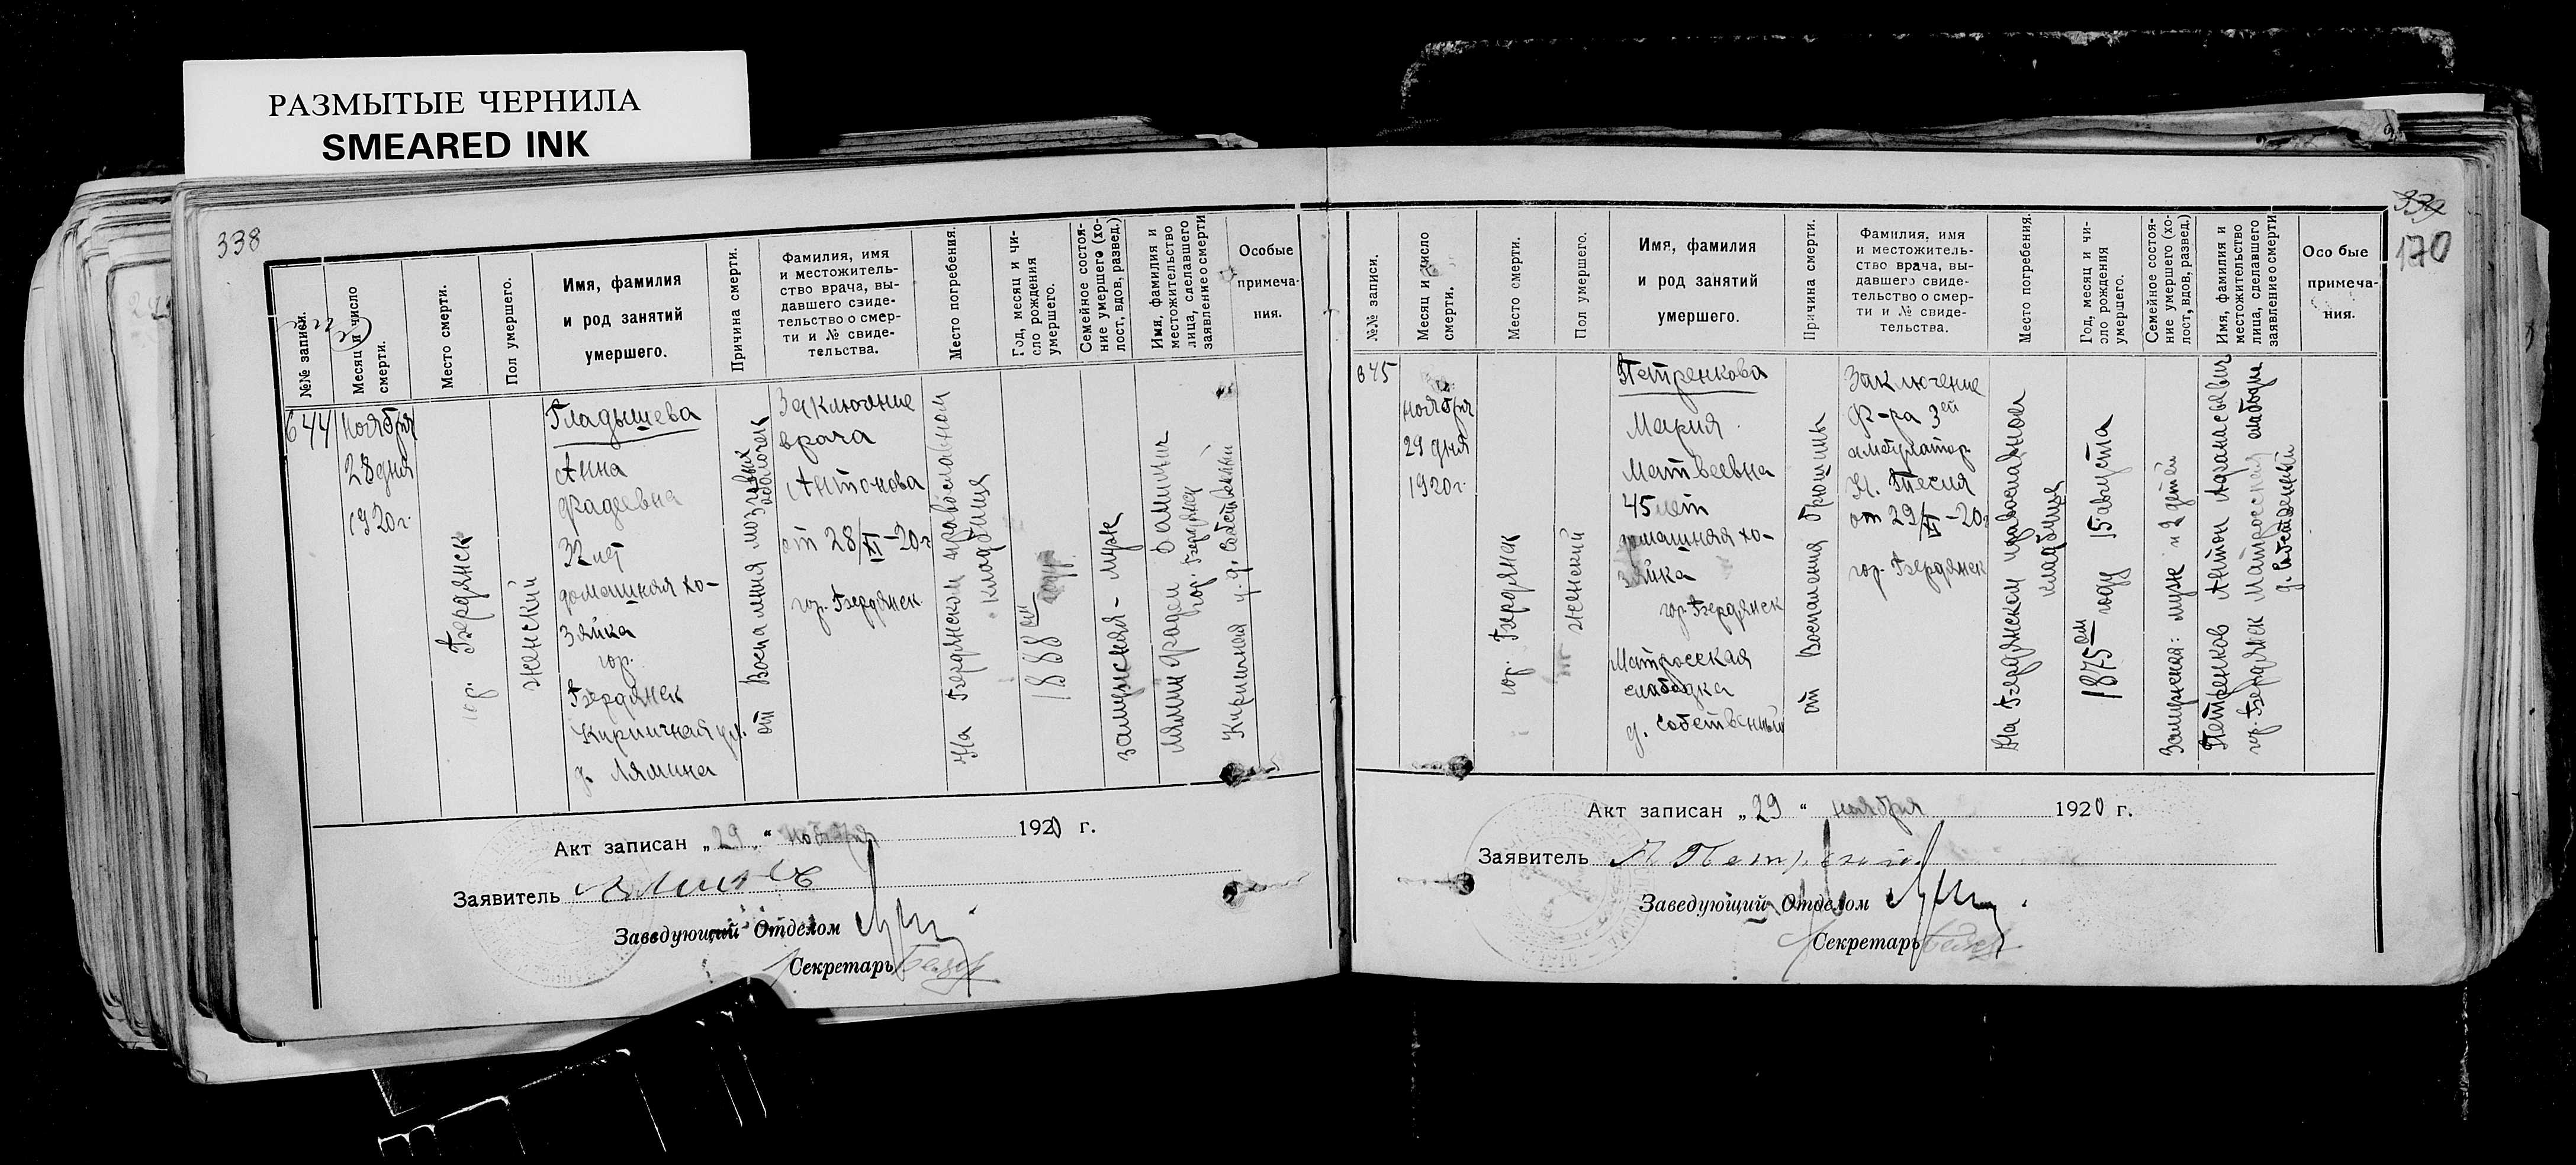 РАЗМЫТЫЕ ЧЕРНИЛА
SMEARED INK
338
№№ записи.
Месяц и число
смерти.
Место смерти.
Пол умершего.
Имя, фамилия
и род занятий
умершего.
Причина смерти.
Фамилия, имя
и местожитель-
ство врача, вы-
давшего свиде-
тельство о смер-
ти и № свиде-
тельства.
Место погребения.
Год, месяц и чи-
сло рождения
умершего.
Семейное состоя-
ние умершего (хо-
лост, вдов, развед.)
Имя, фамилия и
местожительство
лица, сделавшего
заявление о смерти
Особые
примеча-
ния.
644
ноября
28 дня
1920 г.
гор. Бердянск
женский
Гладышева
Анна
Фадеевна
32 лет
домашная хо-
зяйка
гор.
Бердянск
Кирпичная ул.
д. Лямина
от Воспаления мозговых
оболочек
Заключение
врача
Антонова
от 28/XI-20 г
гор. Бердянск
На Бердянском православном
кладбище
1888 ом
году
замужняя - муж
Лямин Фадей
гор. Бердянск
Кирпичная у. д. Собственный
Акт записан „29“ ноября 1920 г.
Заявитель
Заведующий Отделом
Секретарь
339
170
№№ записи.
Месяц и число
смерти.
Место смерти.
Пол умершего.
Имя, фамилия
и род занятий
умершего.
Причина смерти.
Фамилия, имя
и местожитель-
ство врача, вы-
давшего свиде-
тельство о смер-
ти и № свиде-
тельства.
Место погребения.
Год, месяц и чи-
сло рождения
умершего.
Семейное состоя-
ние умершего (хо-
лост, вдов, развед.)
Имя, фамилия и
местожительство
лица, сделавшего
заявление о смерти
Осо бые
примеча-
ния.
645
ноября
29 дня
1920 г.
гор. Бердянск
женский
Петренкова
Мария
Матвеевна
45 лет
домашная хо-
зяйка
гор. Бердянск
Матросская
слабодка
д. Собственный
от Воспаления Брюшины
Заключение
Ф-ра 3ей
амбулатор.
от 29/XI-20 г
гор. Бердянск
На Бердянском православном
кладбище
1875 ом году 15 августа
Замужняя: муж и 2 детей
Петренков Антон Афанасьевич
гор. Бердянск Матросская слабодка
д. Собственный
Акт записан „29“ ноября 1920 г.
Заявитель
Заведующий Отделом
Секретарь